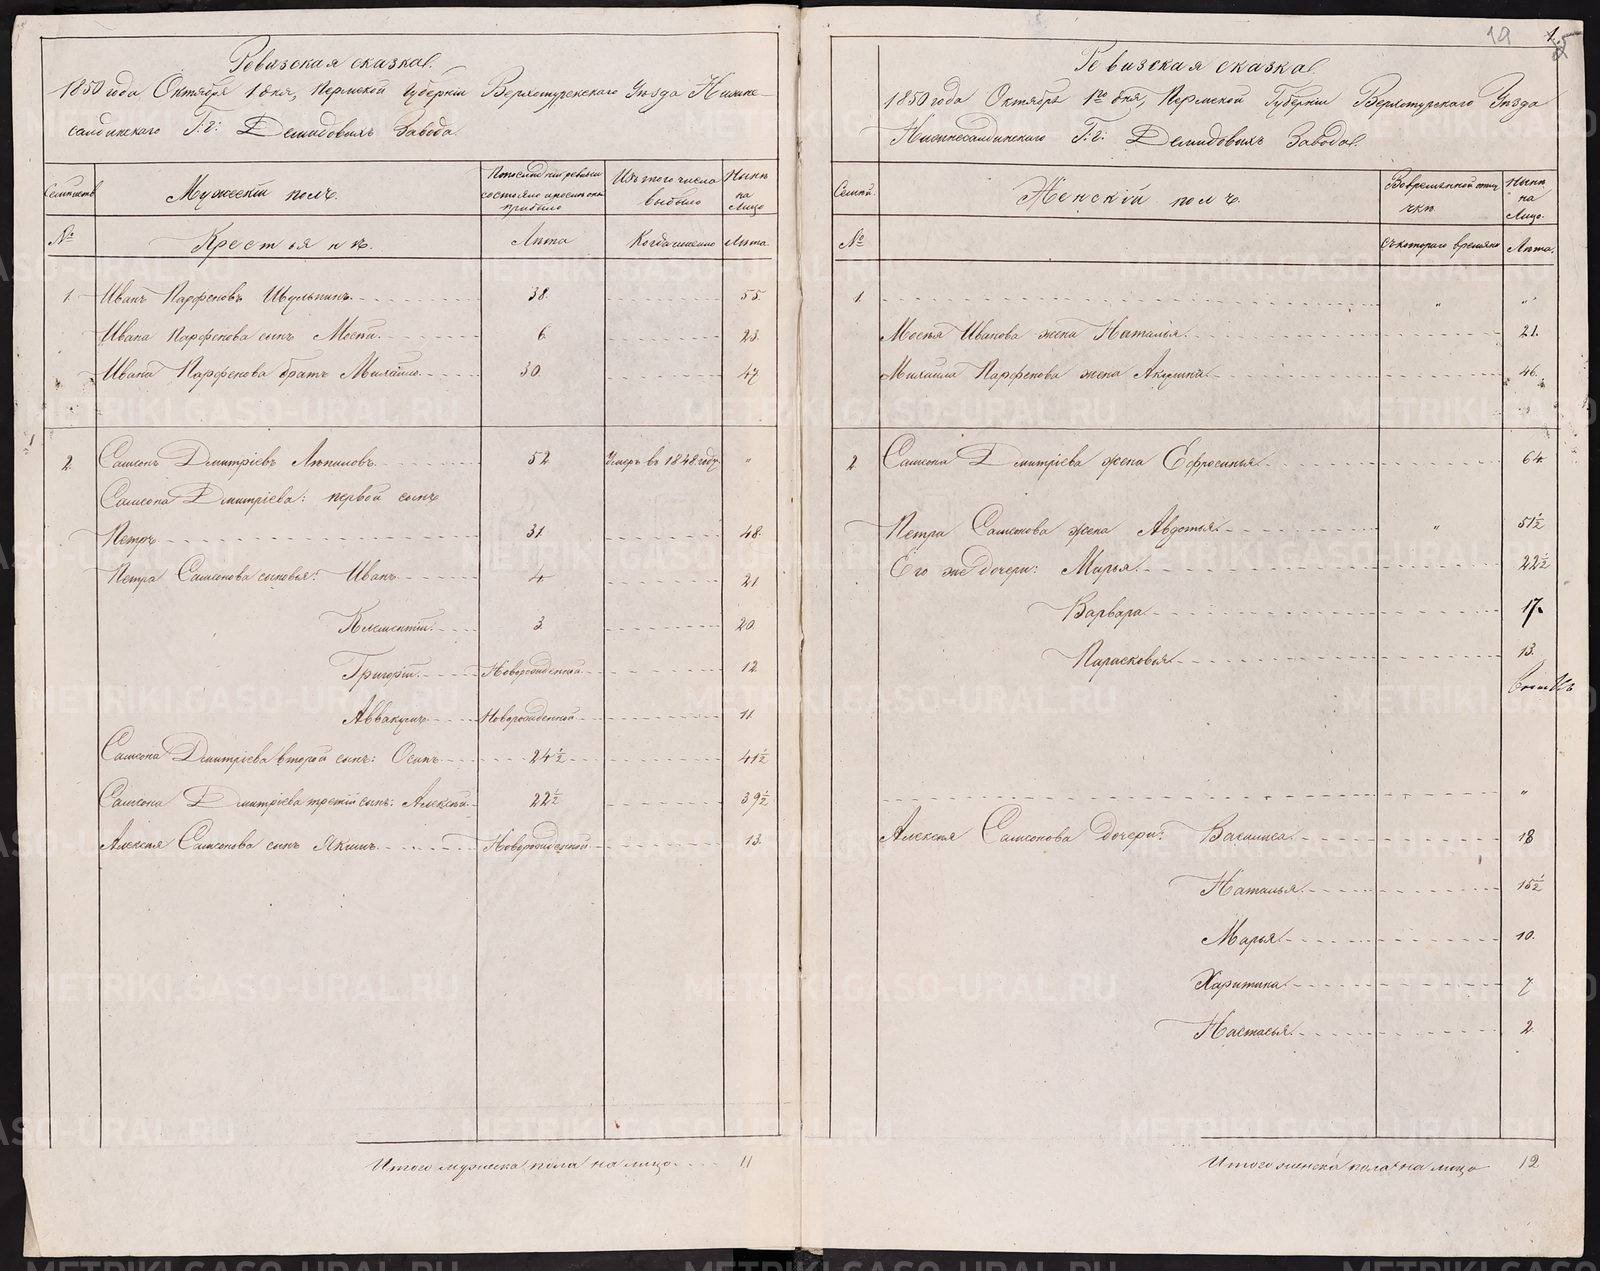 Ревизская сказка.
1850 года Октября 1 дня, Пермской Губернiи Верхотурскаго Уезда Нижне-
салдинскаго Г: г: Демидовыхъ Завода
Семейств Мужескiй полъ. По последней ревизiи состояло и после оной прибыло Изъ того числа выбыло Ныне на Лицо
№ Крестьяне. Лета Когда именно Лета.
1. Иванъ Парфеновъ Шульпинъ. 38. 55.
Ивана Парфенова сынъ Мосей. 6. 23.
Ивана Парфенова братъ Михайло. 30. 47
2. Самсонъ Дмитрiевъ Лепиловъ. 52 Умеръ въ 1848 году. "
Самсона Дмитрiева: первой сынъ
Петръ 31 48.
Петра Самсонова сыновья: Иванъ 4 21
Клементiй. 3. 20.
Григорiй. Новорожденной 12.
Аввакумъ Новорожденной 11
Самсона Дмитрiева второй сынъ: Осипъ 24½ 41½
Самсона Дмитрiева третiй сынъ: Алексей 22½ 39½
Алексея Самсонова сынъ Якимъ Новорожденной 13.
Итого мужеска пола на лицо 11
19 1.
Ревизская сказка.
1850 года Октября 1го дня, Пермской Губернiи Верхотурскаго Уезда
Нижнесалдинскаго Г: г: Демидовыхъ Завода.
Семей. Женскiй полъ. Во временной отлучке. Ныне на Лицо.
№ Съ котораго времени Лета.
1. " "
Мосея Иванова жена Наталья. 21.
Михаила Парфенова жена Акулина. 46.
2 Самсона Дмитрiева жена Ефросинья 64.
Петра Самсонова жена Авдотья " 51½
Его же дочери: Марья 22½
Варвара 17.
Парасковья 13.
"
Алексея Самсонова дочери: Василиса 18
Наталья 15½
Марья 10.
Харитина 7
Настасья 2.
Итого женска пола на лицо 12